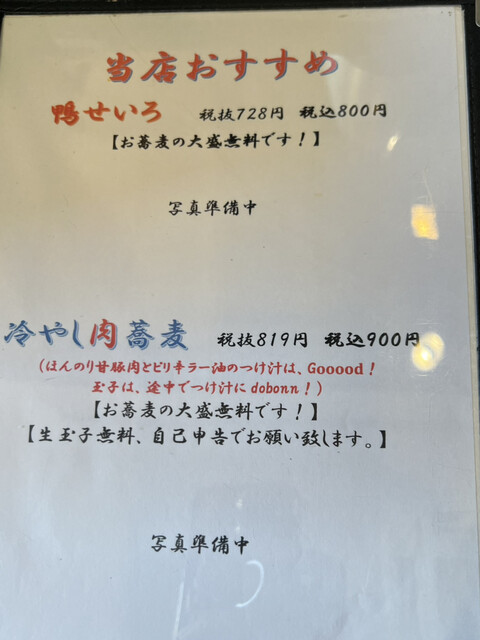 当店おすすめ
鴨せいろ 税抜728円 税込800円
【お蕎麦の大盛無料です！】
写真準備中
冷やし肉蕎麦 税抜819円 税込900円
(ほんのり甘豚肉とピリ辛ラー油のつけ汁は、Gooood！
玉子は、途中でつけ汁にdobonn！)
【お蕎麦の大盛無料です！】
【生玉子無料、自己申告でお願い致します。】
写真準備中